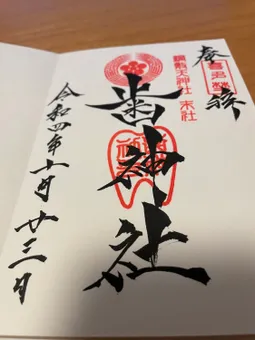 奉拝
喜多埜
綱敷天神社 末社
歯神社
令和四年十月廿三日